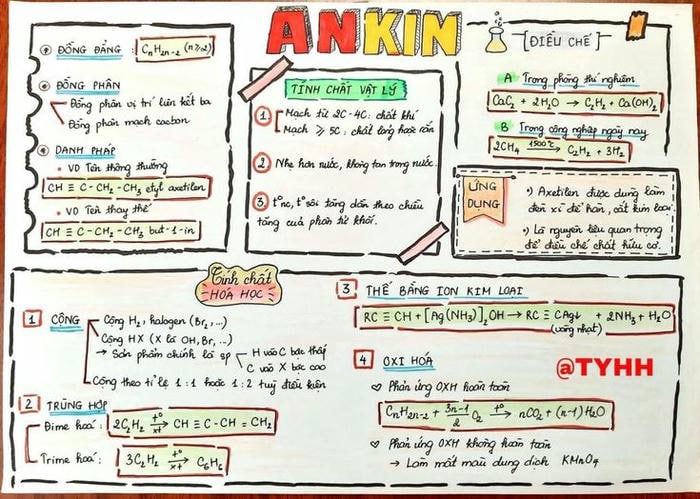 ANKIN
ĐỒNG ĐẲNG : CnH2n-2 (n≥2)
ĐỒNG PHÂN
Đồng phân vị trí liên kết ba
Đồng phân mạch cacbon
DANH PHÁP
VD Tên thông thường
CH ≡ C-CH2-CH3 etyl axetilen
VD Tên thay thế
CH ≡ C-CH2-CH3 but-1-in
TÍNH CHẤT VẬT LÝ
1 Mạch từ 2C-4C: chất khí
Mạch ≥ 5C: chất lỏng hoặc rắn
2 Nhẹ hơn nước, không tan trong nước.
3 t°nc, t°sôi tăng dần theo chiều
tăng của phân tử khối.
[ĐIỀU CHẾ]
A Trong phòng thí nghiệm
CaC2 + 2H2O → C2H2 + Ca(OH)2
B Trong công nghiệp ngày nay
2CH4 1500°C → C2H2 + 3H2
ỨNG DỤNG
Axetilen được dùng làm
đèn xì để hàn, cắt kim loại
Là nguyên liệu quan trọng
để điều chế chất hữu cơ.
Tính chất
HOÁ HỌC
1 CỘNG
Cộng H2, halogen (Br2,...)
Cộng HX (X là OH, Br, ...)
→ Sản phẩm chính là sp H vào C bậc thấp
C vào X bậc cao
Cộng theo tỉ lệ 1:1 hoặc 1:2 tuỳ điều kiện
2 TRÙNG HỢP
Đime hoá: 2C2H2 t° xt → CH ≡ C-CH = CH2
Trime hoá: 3C2H2 t° xt → C6H6
3 THẾ BẰNG ION KIM LOẠI
RC ≡ CH + [Ag(NH3)]2OH → RC ≡ CAg↓ + 2NH3 + H2O
(vàng nhạt)
4 OXI HOÁ
@TYHH
Phản ứng OXH hoàn toàn
CnH2n-2 + 3n-1/2 O2 t° → nCO2 + (n-1)H2O
Phản ứng OXH không hoàn toàn
→ Làm mất màu dung dịch KMnO4